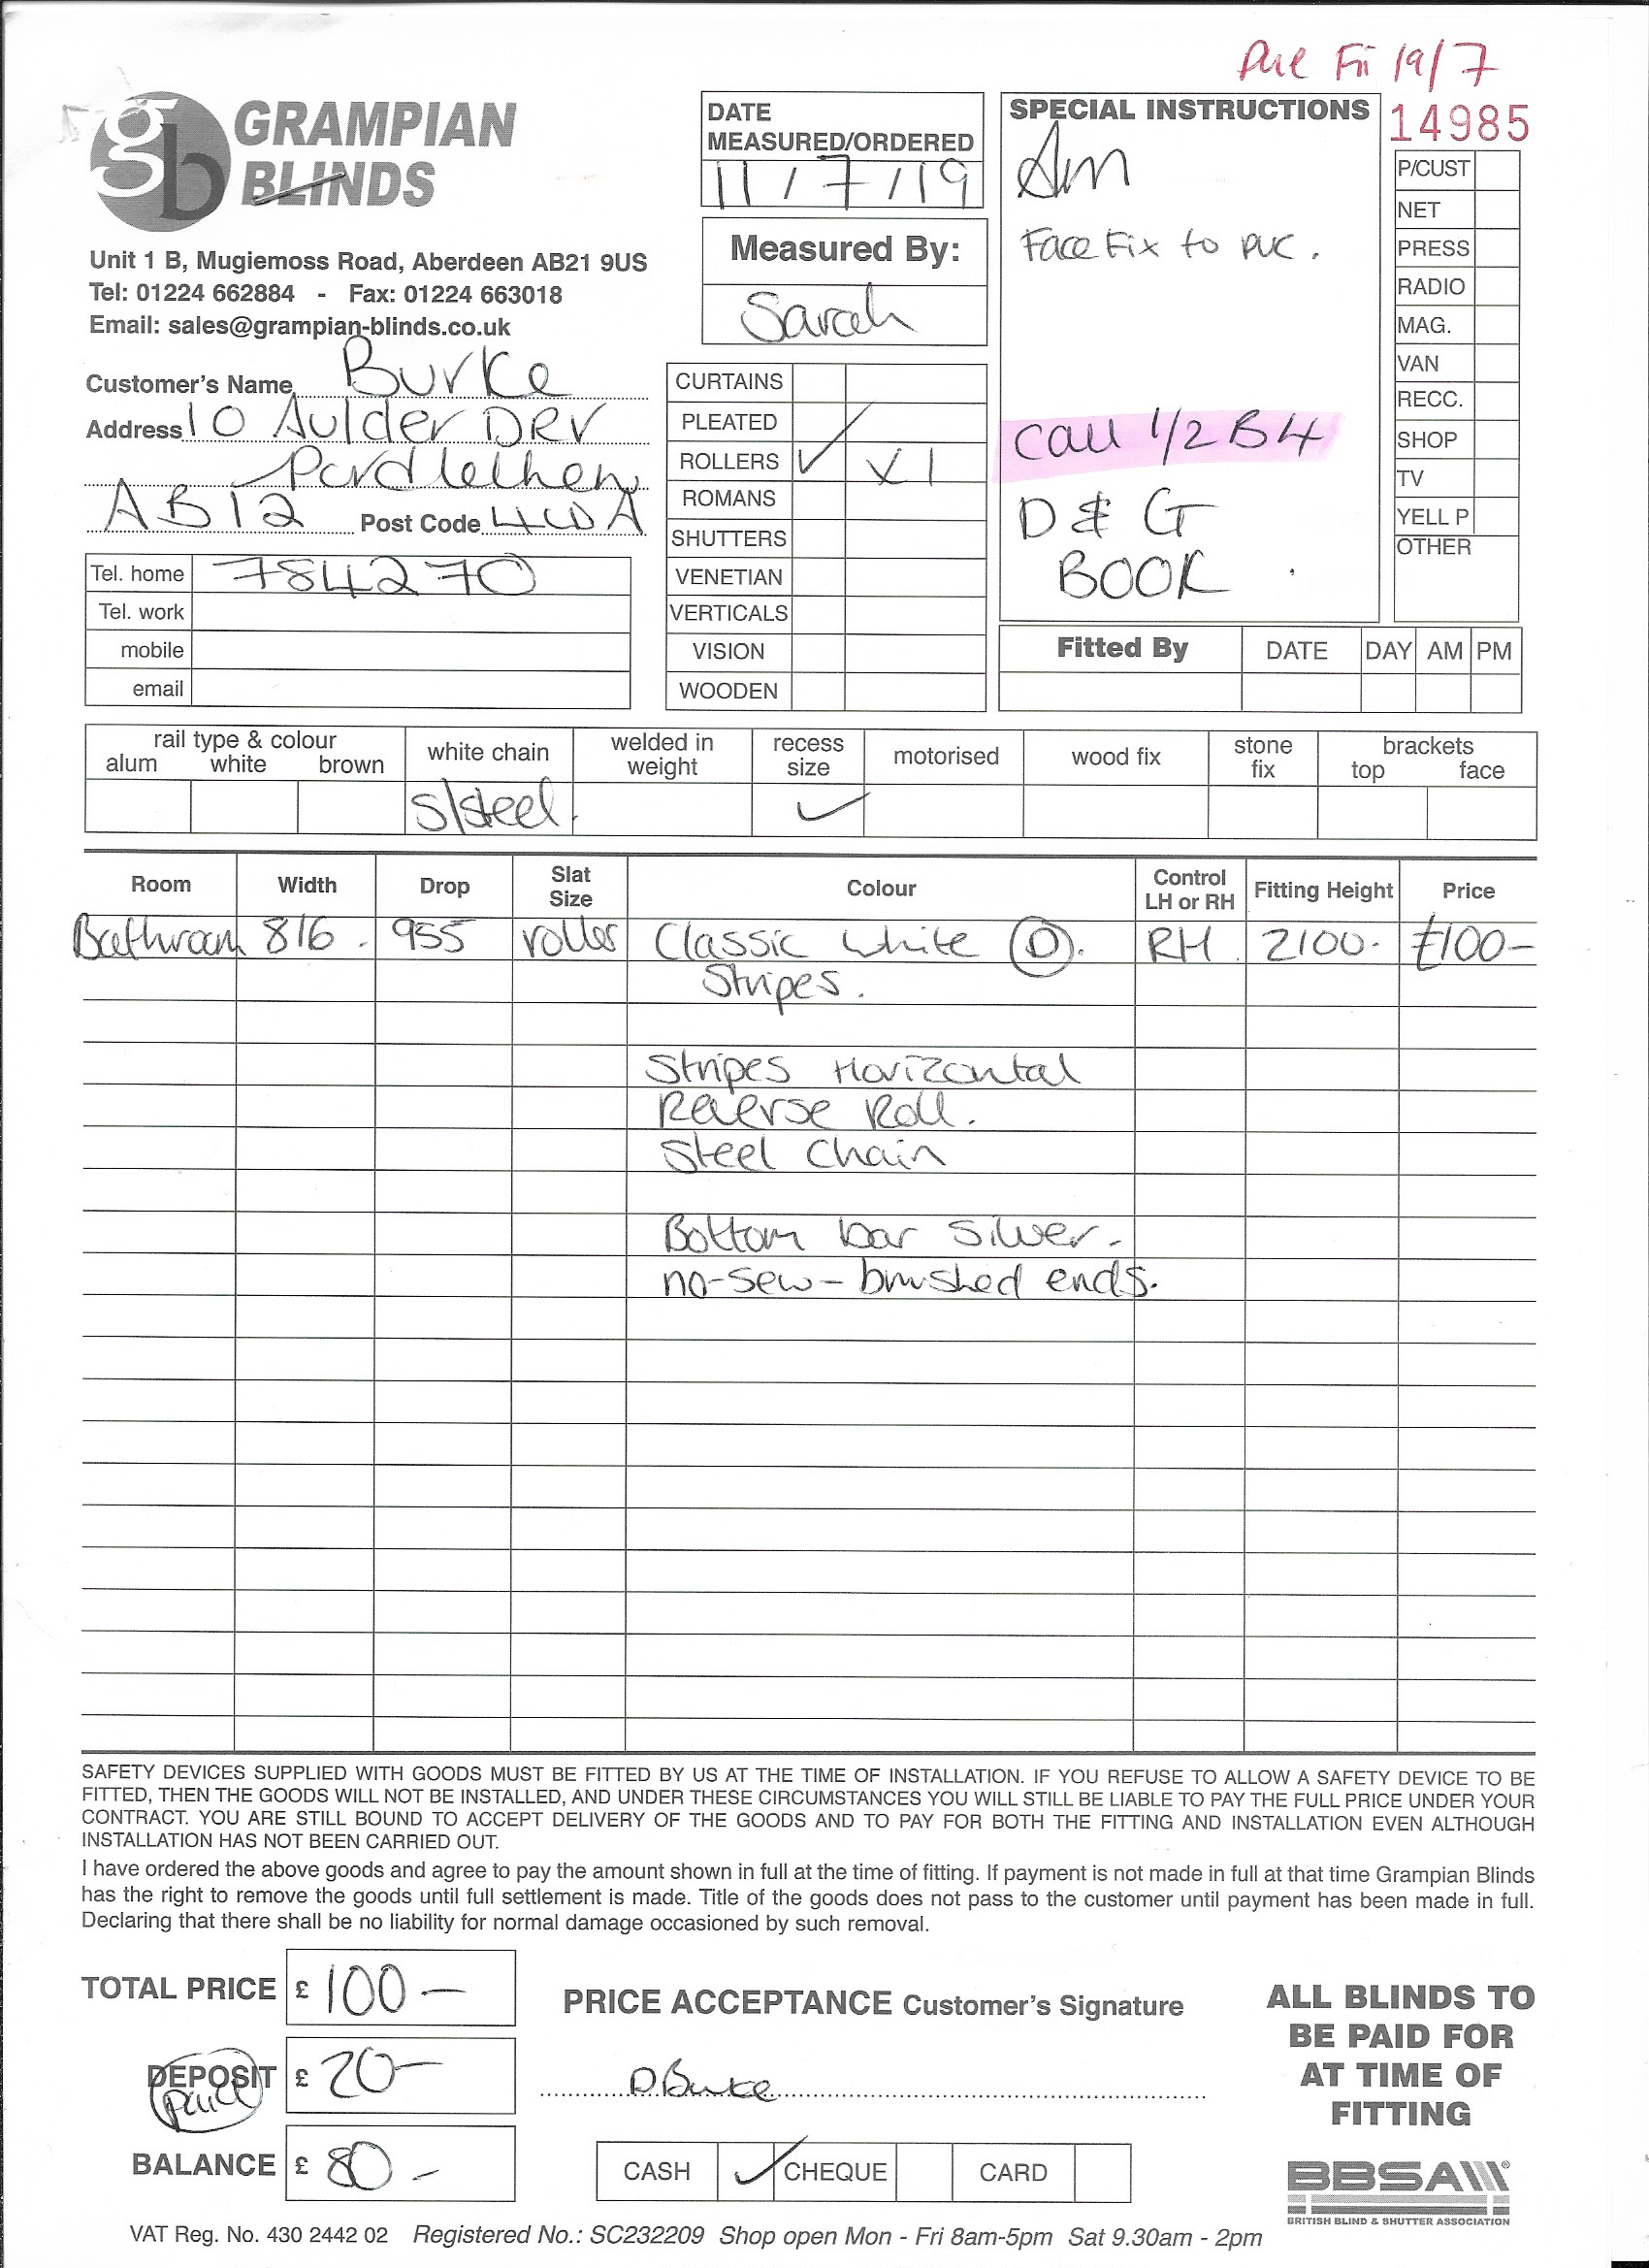 Due Fri 19/7
14985
gb GRAMPIAN
BLINDS
Unit 1 B, Mugiemoss Road, Aberdeen AB21 9US
Tel: 01224 662884 - Fax: 01224 663018
Email: sales@grampian-blinds.co.uk
Customer's Name Burke
Address 10 Aulder DRV
Pordlethen
AB12 Post Code 4WA
Tel. home 784270
Tel. work
mobile
email
DATE
MEASURED/ORDERED
11/7/19
Measured By:
Sarah
CURTAINS
PLEATED
ROLLERS ✓ x1
ROMANS
SHUTTERS
VENETIAN
VERTICALS
VISION
WOODEN
SPECIAL INSTRUCTIONS
Am
Face Fix to PVC.
Call 1/2 B4
D & G
BOOK.
P/CUST
NET
PRESS
RADIO
MAG.
VAN
RECC.
SHOP
TV
YELL P
OTHER
Fitted By DATE DAY AM PM
rail type & colour
alum white brown
white chain
S/Steel.
welded in
weight
recess
size
✓
motorised
wood fix
stone
fix
brackets
top face
Room Width Drop Slat Size Colour Control LH or RH Fitting Height Price
Bathroom 816. 955 roller Classic White (D). RH 2100. £100-
Stripes.
Stripes Horizontal
Reverse Roll.
Steel Chain
Bottom bar Silver.
no-sew - brushed ends.
SAFETY DEVICES SUPPLIED WITH GOODS MUST BE FITTED BY US AT THE TIME OF INSTALLATION. IF YOU REFUSE TO ALLOW A SAFETY DEVICE TO BE
FITTED, THEN THE GOODS WILL NOT BE INSTALLED, AND UNDER THESE CIRCUMSTANCES YOU WILL STILL BE LIABLE TO PAY THE FULL PRICE UNDER YOUR
CONTRACT. YOU ARE STILL BOUND TO ACCEPT DELIVERY OF THE GOODS AND TO PAY FOR BOTH THE FITTING AND INSTALLATION EVEN ALTHOUGH
INSTALLATION HAS NOT BEEN CARRIED OUT.
I have ordered the above goods and agree to pay the amount shown in full at the time of fitting. If payment is not made in full at that time Grampian Blinds
has the right to remove the goods until full settlement is made. Title of the goods does not pass to the customer until payment has been made in full.
Declaring that there shall be no liability for normal damage occasioned by such removal.
TOTAL PRICE £ 100-
DEPOSIT £ 20-
Paid
BALANCE £ 80-
PRICE ACCEPTANCE Customer's Signature
D Burke
CASH ✓ CHEQUE CARD
ALL BLINDS TO
BE PAID FOR
AT TIME OF
FITTING
BBSA
BRITISH BLIND & SHUTTER ASSOCIATION
VAT Reg. No. 430 2442 02 Registered No.: SC232209 Shop open Mon - Fri 8am-5pm Sat 9.30am - 2pm